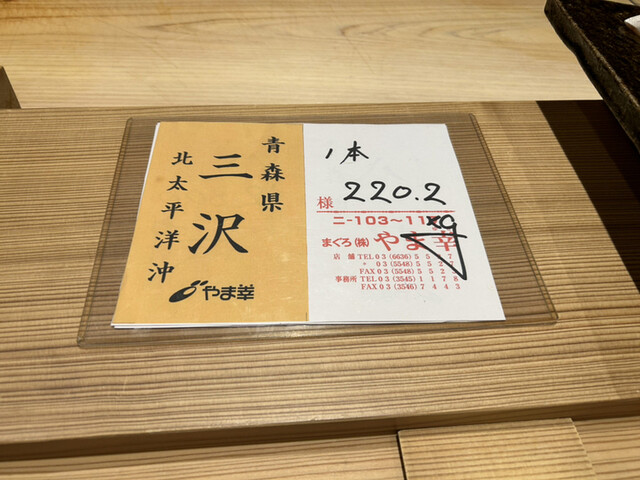 青森県
三沢
北太平洋沖
やま幸
1本
220.2
kg
様
ニ-103〜11
まぐろ(株)やま幸
店舗 TEL 03(6636)5
〃 03(5548)552
FAX 03(5548)552
事務所 TEL 03(3545)1178
FAX 03(3546)7443